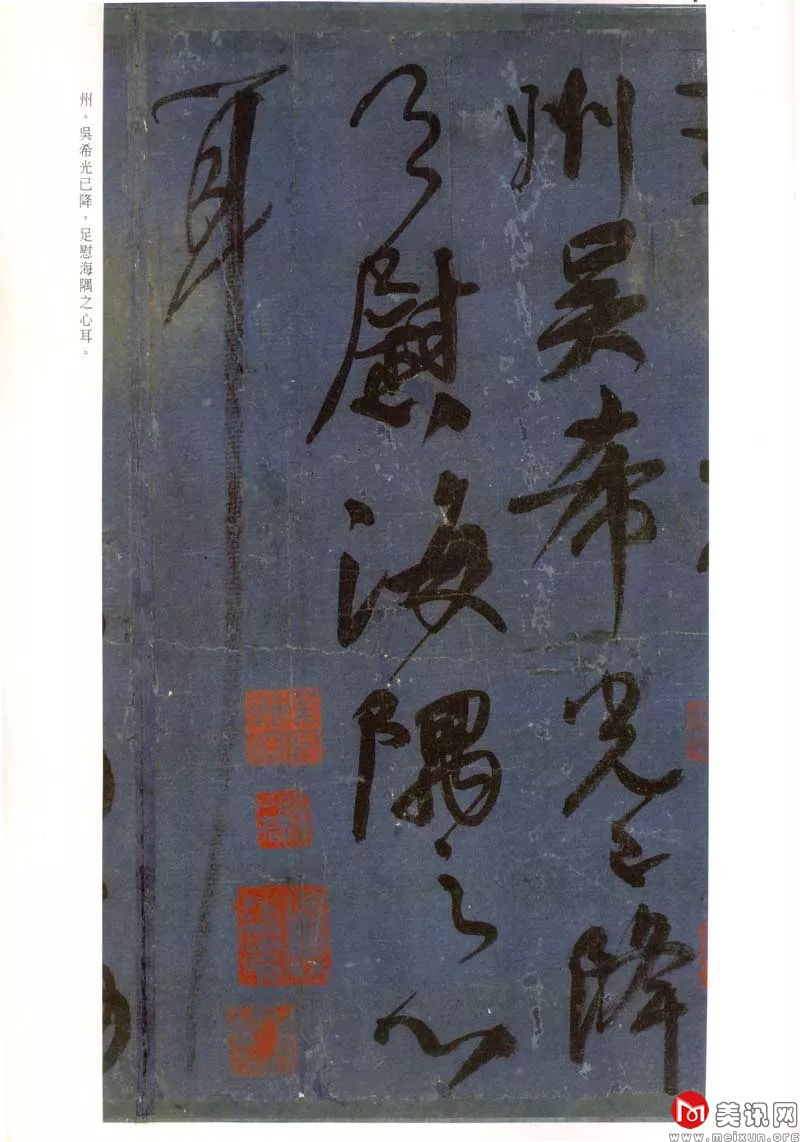 州吳希光已降
足慰海隅之心
耳
州。吳希光已降。足慰海隅之心耳。
美讯网
www.meixun.org